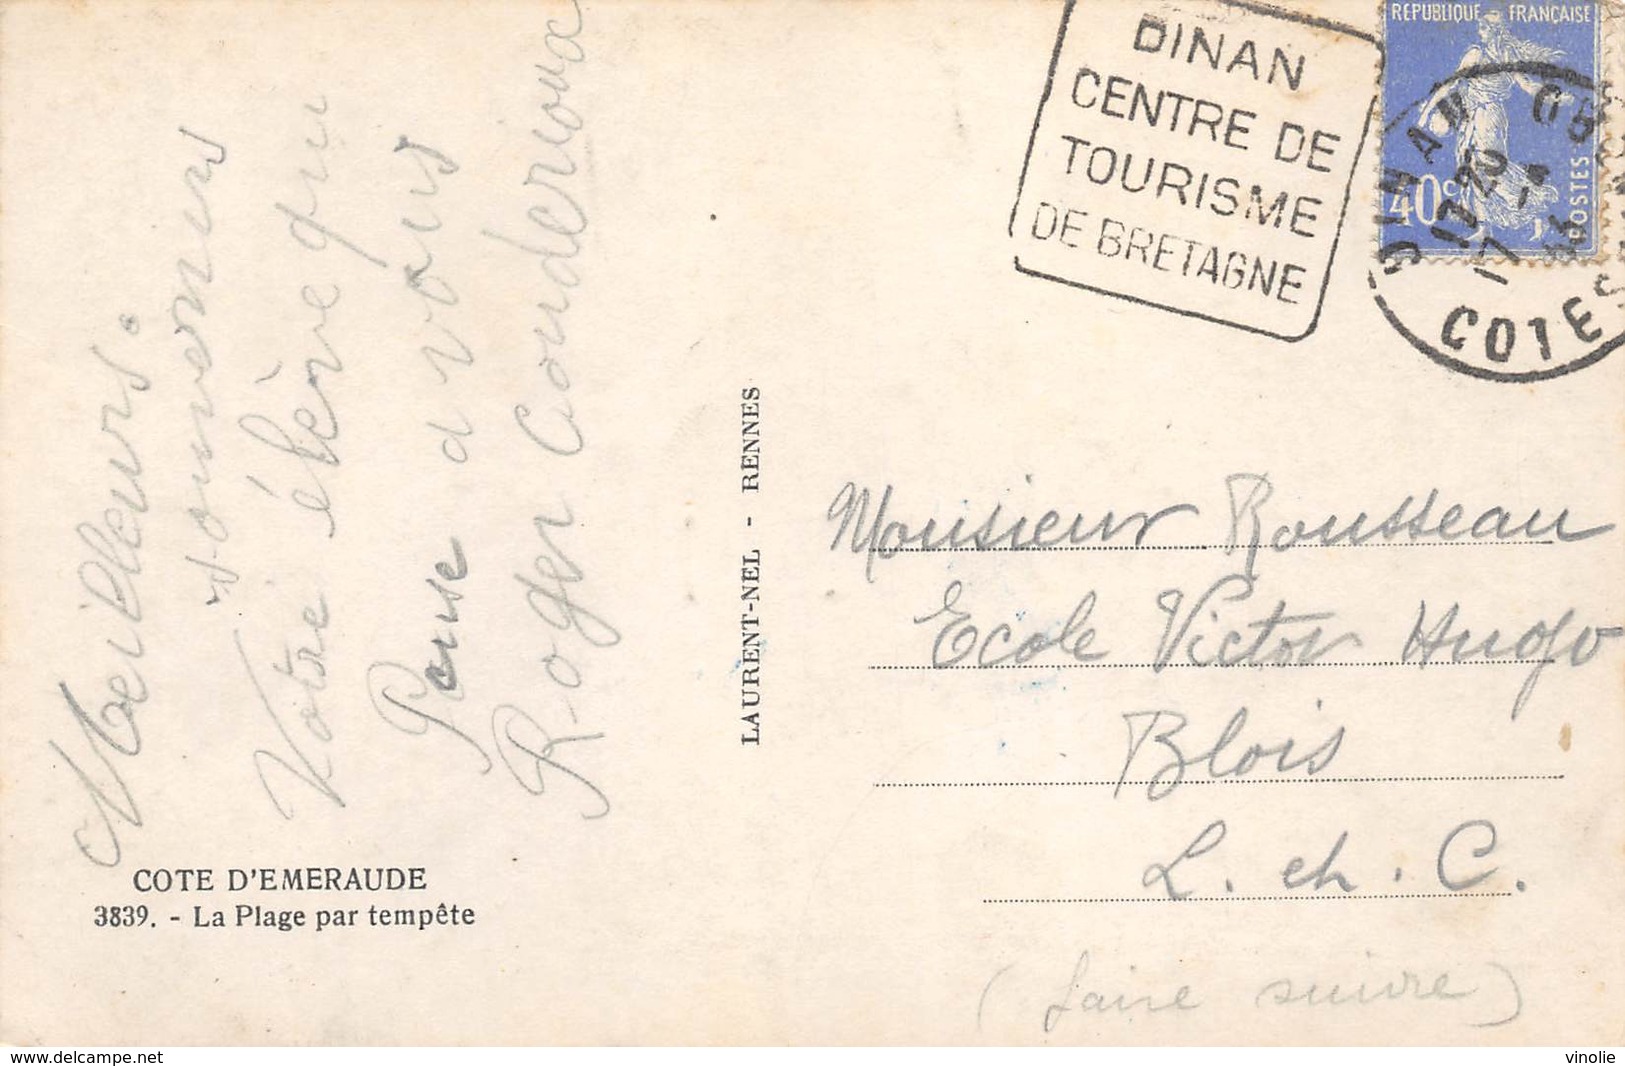 Meilleurs.
souvenirs
Votre élève qui
Pense a vous
Roger
COTE D'EMERAUDE
3839. - La Plage par tempête
LAURENT-NEL - RENNES
DINAN
CENTRE DE
TOURISME
DE BRETAGNE
REPUBLIQUE FRANÇAISE
40c
POSTES
DINAN
COTES
17 20
Monsieur Rousseau
Ecole Victor Hugo
Blois
L. ch. C.
(faire suivre)
www.delcampe.net
vinolie